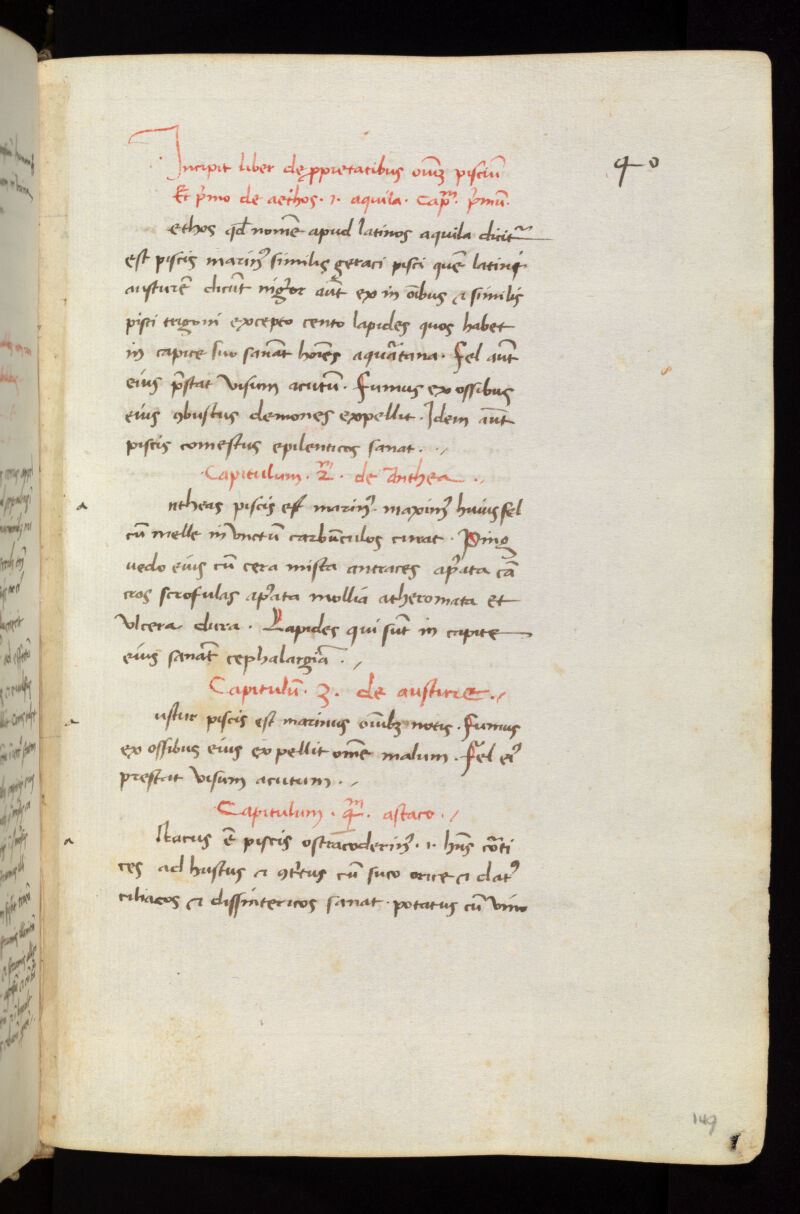 40
Incipit liber de ꝓpretatibus oīuꝫ pisciū
Et p̄mo de aethos · i · aquila · Capm̄ · p̄mū ·
ethos qđ nomē apud latinos aquila dicit᷑
est piscis marin᷒ similis geraci pisci quē latini
austurē dicūt nigrior aūt ex in oībus ⁊ similis
pisci trigoni excepto cento lapides quos habet
in capite suo sanāt hoīēs aquartana · Fel aūt
eius p̄stat visum acutū · Fumus ex ossibus
eius ꝯbustus demones expellit · Idem aūt
piscis comestus epilenticos sanat ·
Capitulum · 2m̄ · de Anthea ·
ntheas piscis est marin᷒ · maxim᷒ huius fel
cū melle in unctū carbūculos curat · Ping
uedo eius cū cera mista antraces ap̄ata cā
cros scrofulas ap̄ata mollia atheromata et
vlcera dura · Lapides qui sūt in capite
eius sanāt cephalargiā ·
Capitulū · 3 · de austure ·
ustur piscis est marinus oīībꝫ notis · Fumus
ex ossibus eius expellit omē malum · Fel ei᷒
prestat visum acutum ·
Capitulum · qm̄ · astaco ·
stacus ē piscis ostracoderin᷒ · i · hn̄s corti
ces ad hustus ⁊ ꝯt᷑tus cū suco ⁊ dat᷒
ciliacos ⁊ dissintericos sanat · potatus cū vino
149